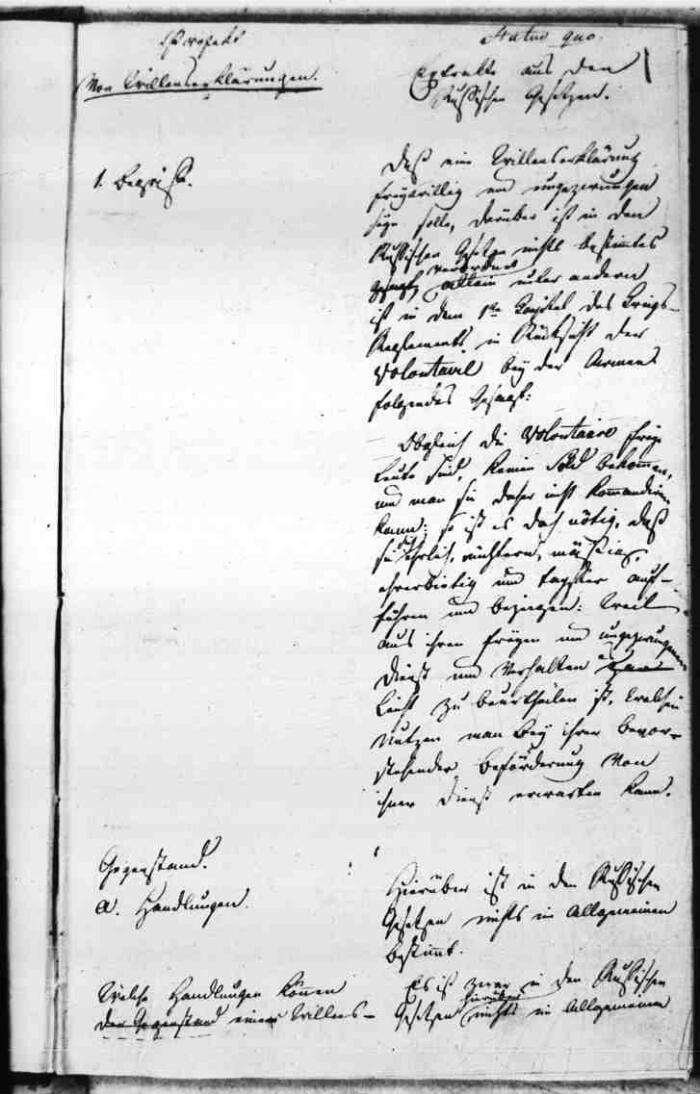 Projekt
Von Willenserklärungen.
1. Begriffe.
Gegenstand.
a. Handlungen.
Welche Handlungen können
der Gegenstand einer Willens-
Status quo.
Extrakte aus den
Russischen Gesetzen.
Daß eine Willenserklärung
freywillig und ungezwungen
seyn solle, darüber ist in den
Russischen Gesetzen nichts bestimmtes
verordnet
gesagt, allein unter andern
ist in dem 1ten Kapitel des Kriegs-
Reglements in Rücksicht der
Volontairs bey der Armee
folgendes gesagt:
Obgleich die Volontaire freye
Leute sind, keinen Sold bekommen,
und man sie daher nicht komandiren
kann; so ist es doch nötig, daß
sie sich ehrlich, nüchtern, mäßig,
ehrerbietig und tapfer auf-
führen und bezeigen: Weil
aus ihren freyen und ungezwungenen
Dienst und Verhalten
leicht zu beurtheilen ist, welchen
Nutzen man bey ihrer bevor-
stehender Beförderung von
ihrem Dienst erwarten kann.
Hierüber ist in den Russischen
Gesetzen nichts im Allgemeinen
bestimmt.
Es ist zwar in den Russischen
hierüber
Gesetzen nichts im Allgemeinen